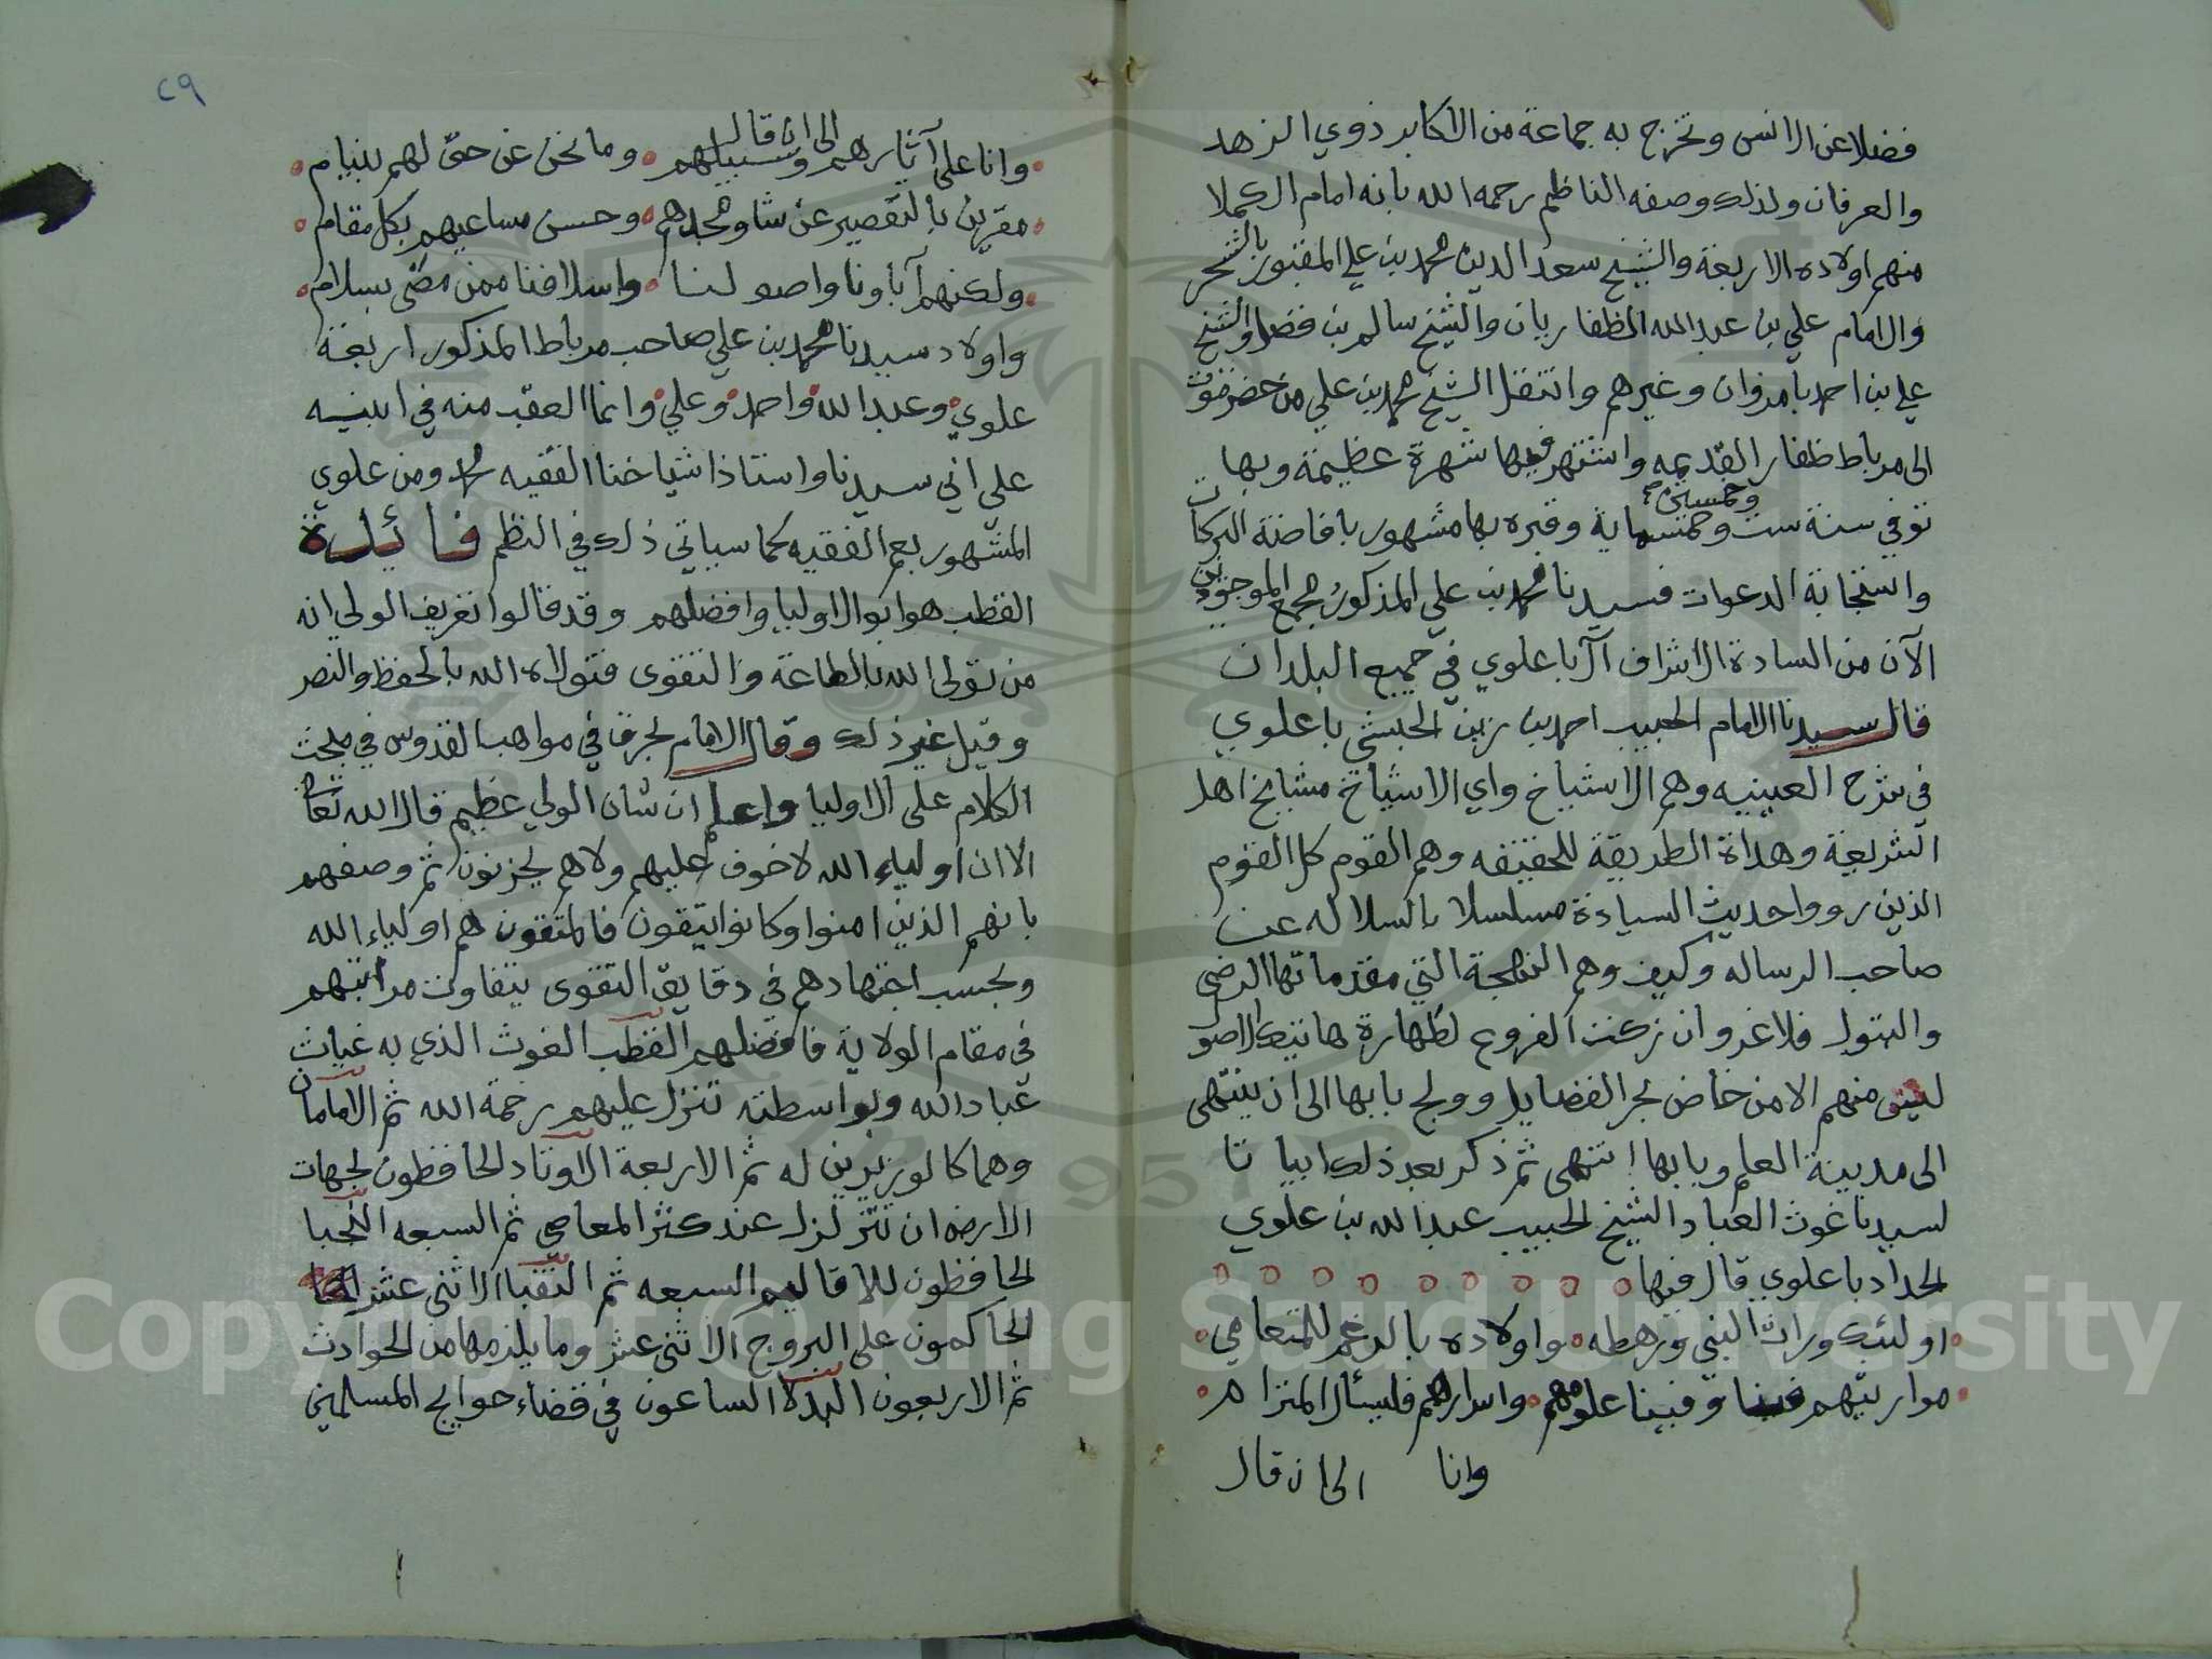 فضلا عن الانس وتخرج به جماعة من الاكابر ذوي الزهد
والعرفان ولذلك وصفه الناظم رحمه الله بانه امام الكملا
منهم اولاده الاربعة والشيخ سعد الدين محمد بن علي المقبور بالشحر
والامام علي بن عبدالله الظفاريان والشيخ سالم بن فضل والشيخ
علي بن احمد بامروان وغيرهم وانتقل الشيخ محمد بن علي من حضرموت
الى مرباط ظفار القديمه واشتهر فيها شهرة عظيمة وبها
توفي سنة ست وخمسين وخمسماية وقبره بها مشهور بافاضة البركات
واستجابة الدعوات فسيدنا محمد بن علي المذكور مجمع الموجودين
الآن من السادة الاشراف آل باعلوي في جميع البلدان
قال سيدنا الامام الحبيب احمد بن زين الحبشي باعلوي
في شرح العينيه وهم الاشياخ واي الاشياخ مشايخ اهل
الشريعة وهداة الطريقة للحقيقه وهم القوم كل القوم
الذين رووا حديث السيادة مسلسلا بالسلاله عن
صاحب الرساله وكيف وهم النتيجة التي مقدماتها الرضي
والبتول فلا غروان زكت الفروع لطهارة هاتيك الاصول
ليس منهم الا من خاض بحر الفضايل وولج بابها الى ان ينتهى
الى مدينة العلم وبابها انتهى ثم ذكر بعد ذلك ابياتا
لسيدنا غوث العباد الشيخ الحبيب عبدالله بن علوي
الحداد باعلوي قال فيها
اولئك وراث النبي ورهطه واولاده بالرغم للمتعامي
مواريثهم فينا وفينا علومهم واسرارهم فليسأل المترام
وانا الى ان قال
٢٩
الى ان قال
وانا على آثارهم وسبيلهم وما نحن عن حق لهم بنيام
مقرين بالتقصير عن شاو مجدهم وحسن مساعيهم بكل مقام
ولكنهم آباونا واصولنا واسلافنا ممن مضى بسلام
واولاد سيدنا محمد بن علي صاحب مرباط المذكور اربعة
علوي وعبدالله واحمد وعلي وانما العقب منه في ابنيه
علي ابي سيدنا واستاذ اشياخنا الفقيه محمد ومن علوي
المشهور بعم الفقيه كما سياتي ذلك في النظم فائدة
القطب هو ابو الاوليا وافضلهم وقد قالوا تعريف الولي انه
من تولى الله بالطاعة والتقوى فتولاه الله بالحفظ والنصر
وقيل غير ذلك وقال الامام بحرق في مواهب القدوس في مبحث
الكلام على الاوليا واعلم ان شان الولي عظيم قال الله تعالى
الا ان اولياء الله لا خوف عليهم ولا هم يحزنون ثم وصفهم
بانهم الذين امنوا وكانوا يتقون فالمتقون هم اولياء الله
وبحسب اجتهادهم في دقايق التقوى يتفاوت مراتبهم
في مقام الولاية فافضلهم القطب الغوث الذي به غياث
عباد الله وبواسطته تنزل عليهم رحمة الله ثم الامامان
وهما كالوزيرين له ثم الاربعة الاوتاد الحافظون لجهات
الارض ان تتزلزل عند كثر المعاصي ثم السبعه النجبا
الحافظون للاقاليم السبعه ثم النقبا الاثنى عشر
الحاكمون على البروج الاثنى عشر وما يلزمها من الحوادث
ثم الاربعون البدلا الساعون في قضاء حوايج المسلمين
Copyright © King Saud University